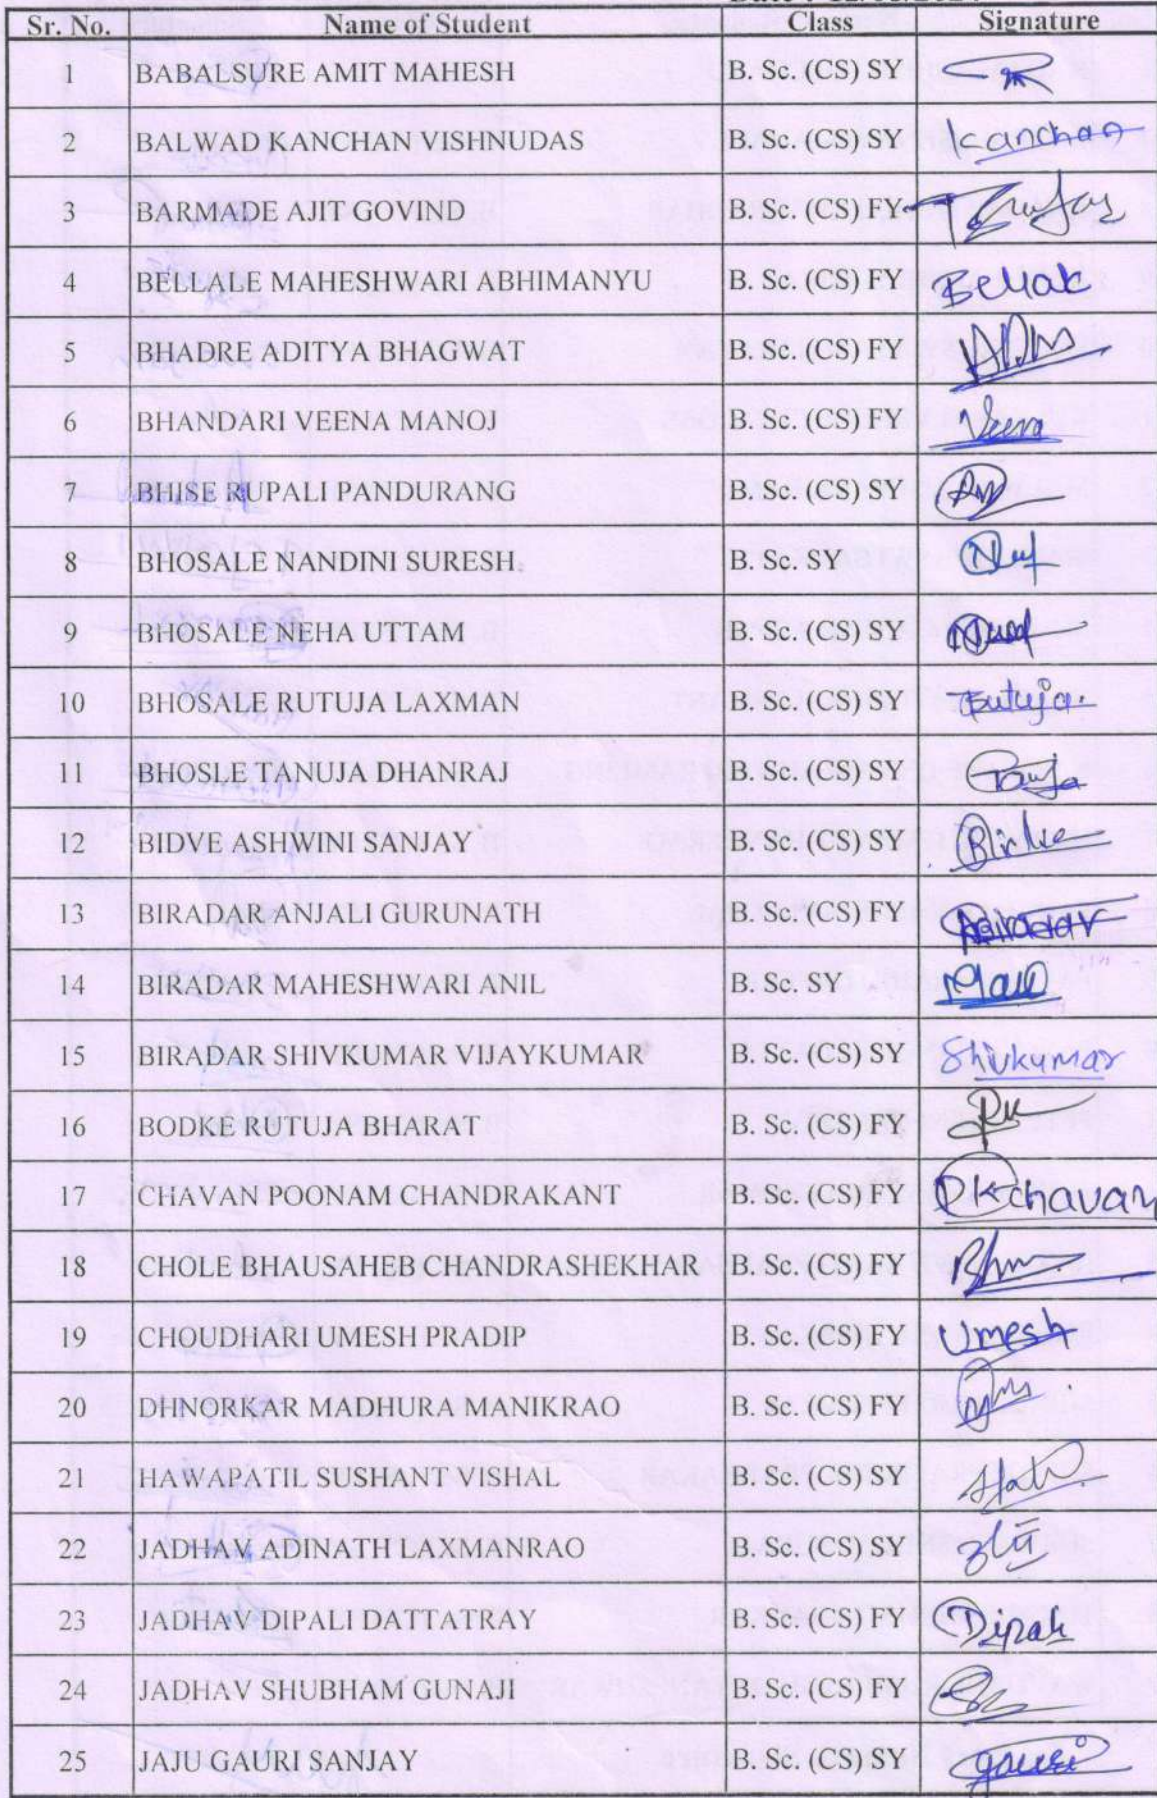 Sr. No. Name of Student Class Signature
1 BABALSURE AMIT MAHESH B. Sc. (CS) SY
2 BALWAD KANCHAN VISHNUDAS B. Sc. (CS) SY Kanchan
3 BARMADE AJIT GOVIND B. Sc. (CS) FY
4 BELLALE MAHESHWARI ABHIMANYU B. Sc. (CS) FY
5 BHADRE ADITYA BHAGWAT B. Sc. (CS) FY
6 BHANDARI VEENA MANOJ B. Sc. (CS) FY
7 BHISE RUPALI PANDURANG B. Sc. (CS) SY
8 BHOSALE NANDINI SURESH B. Sc. SY
9 BHOSALE NEHA UTTAM B. Sc. (CS) SY
10 BHOSALE RUTUJA LAXMAN B. Sc. (CS) SY Rutuja.
11 BHOSLE TANUJA DHANRAJ B. Sc. (CS) SY
12 BIDVE ASHWINI SANJAY B. Sc. (CS) SY
13 BIRADAR ANJALI GURUNATH B. Sc. (CS) FY
14 BIRADAR MAHESHWARI ANIL B. Sc. SY
15 BIRADAR SHIVKUMAR VIJAYKUMAR B. Sc. (CS) SY Shivkumar
16 BODKE RUTUJA BHARAT B. Sc. (CS) FY
17 CHAVAN POONAM CHANDRAKANT B. Sc. (CS) FY chavan
18 CHOLE BHAUSAHEB CHANDRASHEKHAR B. Sc. (CS) FY
19 CHOUDHARI UMESH PRADIP B. Sc. (CS) FY Umesh
20 DHNORKAR MADHURA MANIKRAO B. Sc. (CS) FY
21 HAWAPATIL SUSHANT VISHAL B. Sc. (CS) SY
22 JADHAV ADINATH LAXMANRAO B. Sc. (CS) SY
23 JADHAV DIPALI DATTATRAY B. Sc. (CS) FY Dipali
24 JADHAV SHUBHAM GUNAJI B. Sc. (CS) FY
25 JAJU GAURI SANJAY B. Sc. (CS) SY gauri